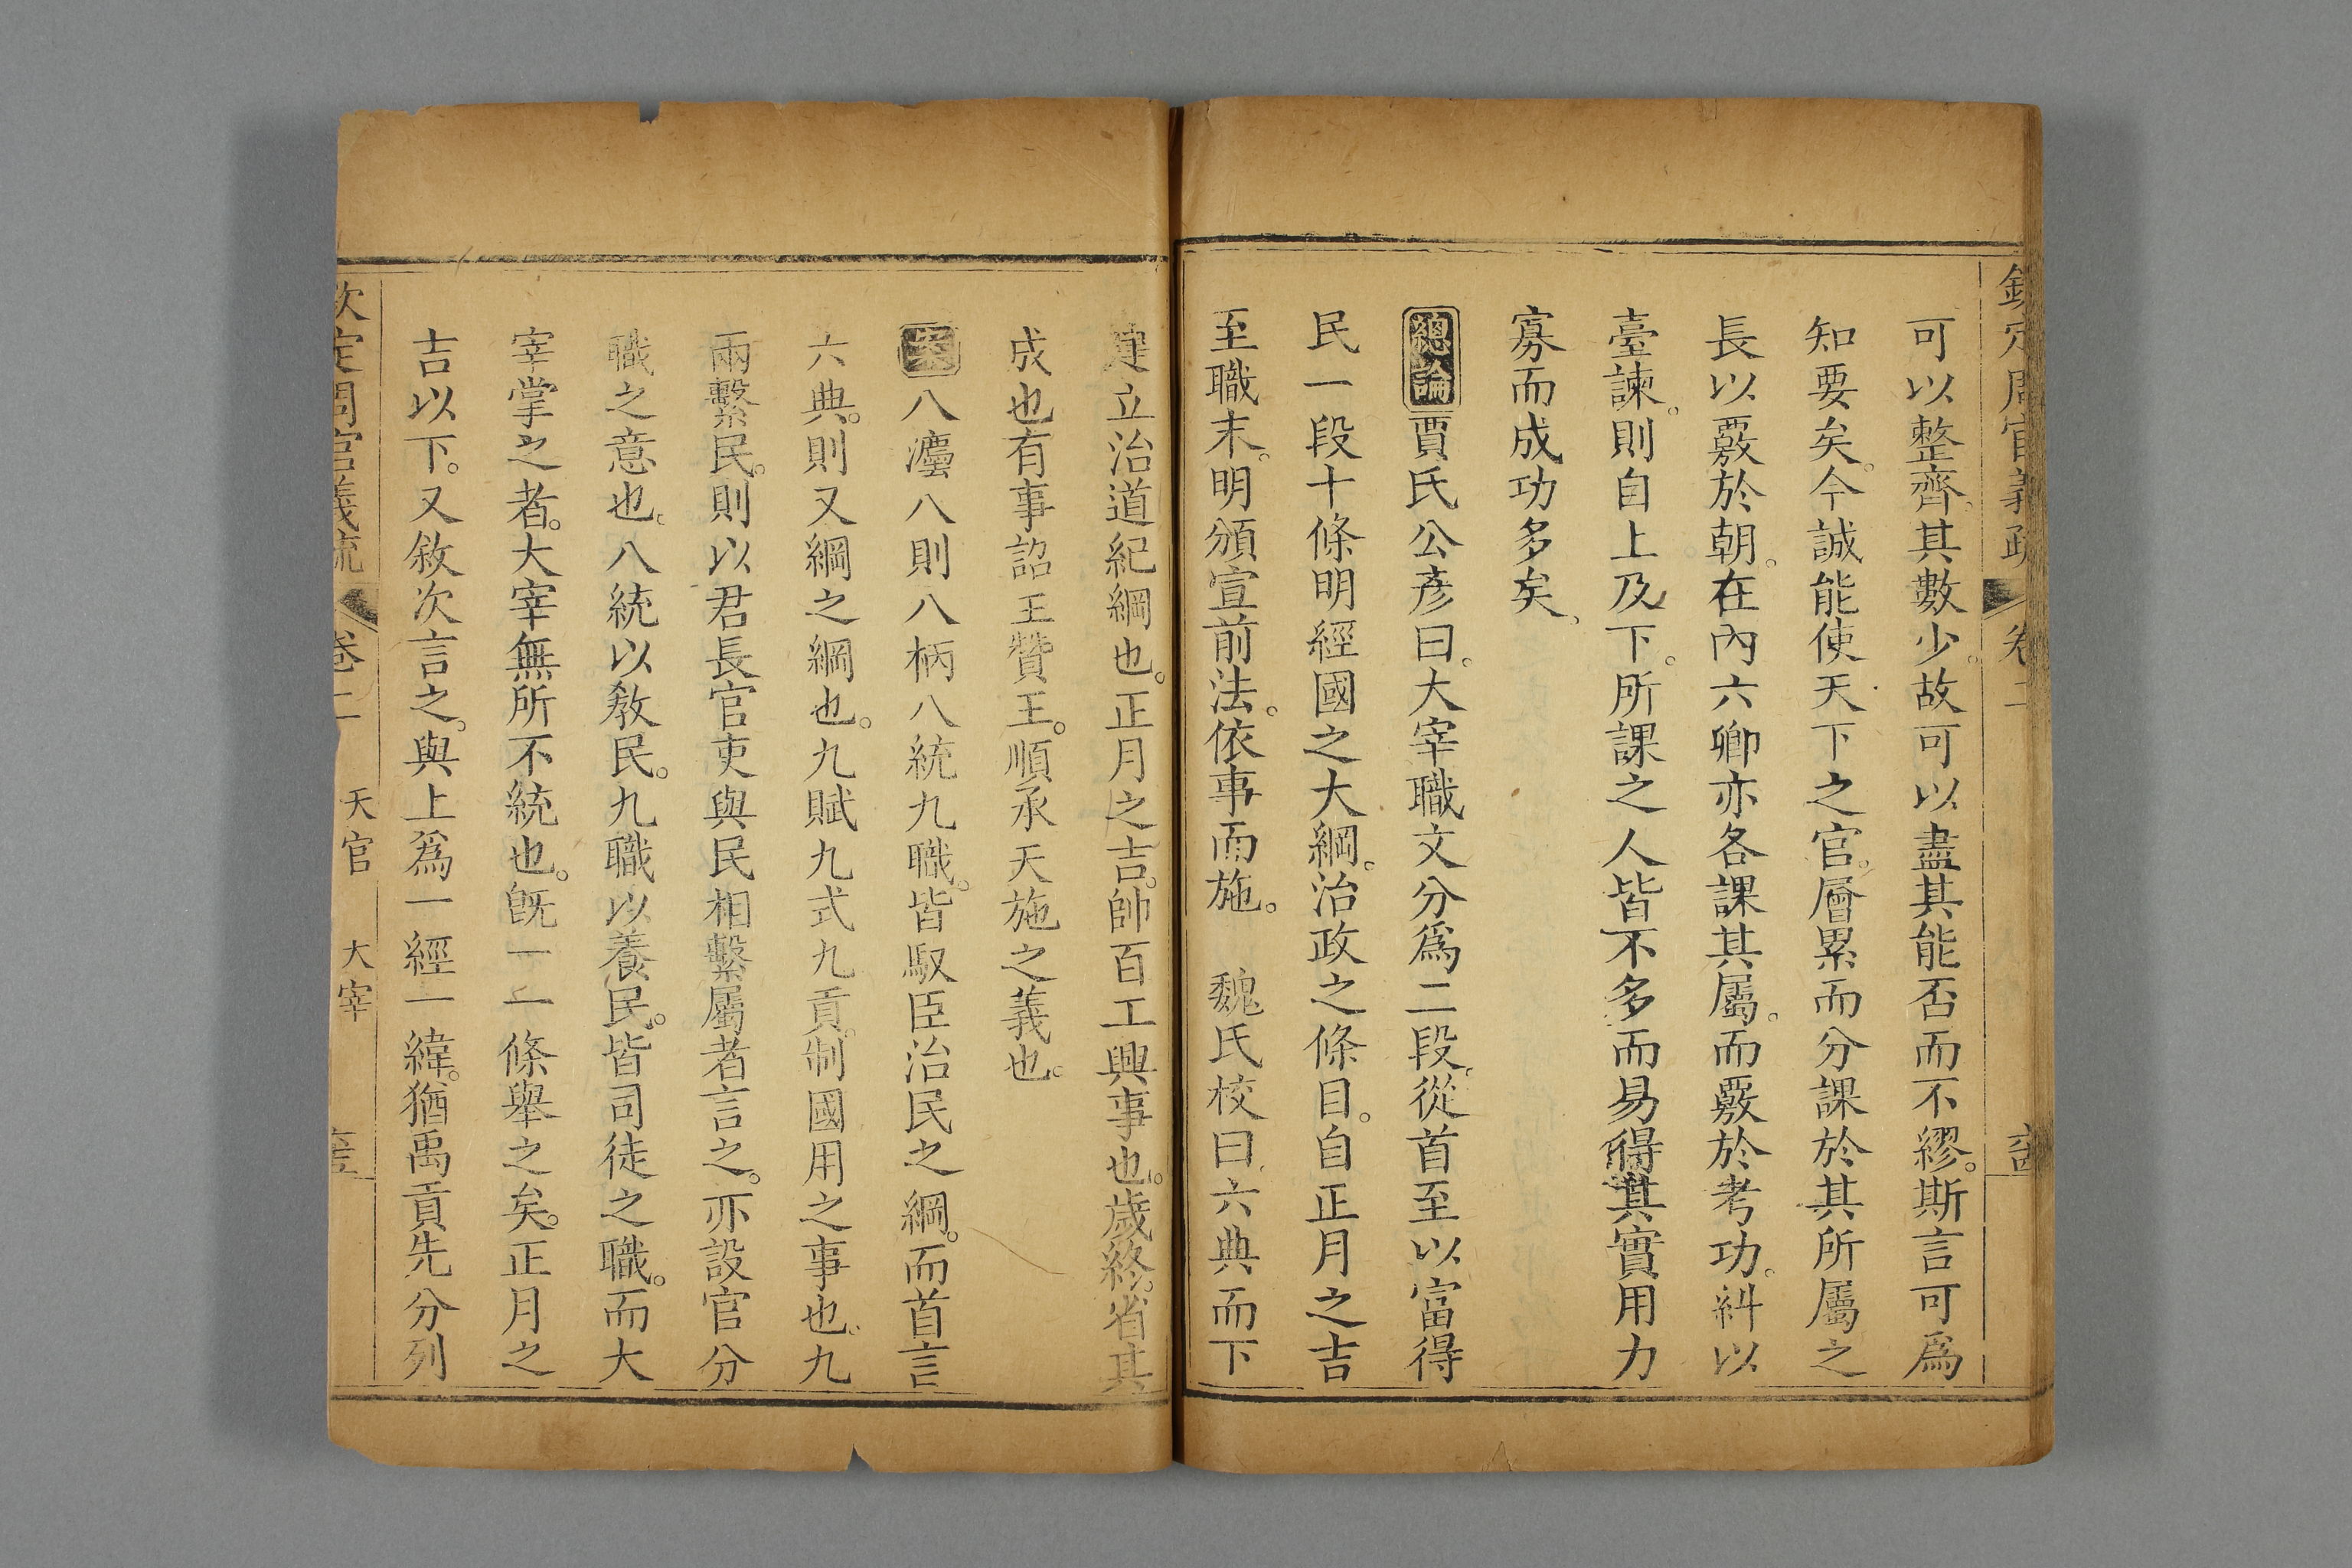 欽定周官義疏 卷二
可以整齊。其數少。故可以盡其能否而不繆。斯言可爲
知要矣。今誠能使天下之官。層累而分課於其所屬之
長以覈於朝。在內六卿亦各課其屬。而覈於考功。糾以
臺諫。則自上及下。所課之人皆不多而易得其實用力
寡而成功多矣、
總論賈氏公彥曰。大宰職文分爲二段。從首至以富得
民一段十條明經國之大綱。治政之條目。自正月之吉
至職末。明頒宣前法。依事而施。 魏氏校曰、六典而下
建立治道紀綱也。正月之吉。帥百工興事也。歲終。省其
成也有事詔王贊王。順承天施之義也。
案八灋八則八柄八統九職。皆馭臣治民之綱。而首言
六典。則又綱之綱也。九賦九式九貢。制國用之事也。九
兩繫民。則以君長官吏與民相繫屬者言之。亦設官分
職之意也。八統以敎民。九職以養民。皆司徒之職。而大
宰掌之者。大宰無所不統也。旣一一條舉之矣。正月之
吉以下。又敘次言之。與上爲一經一緯。猶禹貢先分列
欽定周官義疏 卷二 天官 大宰